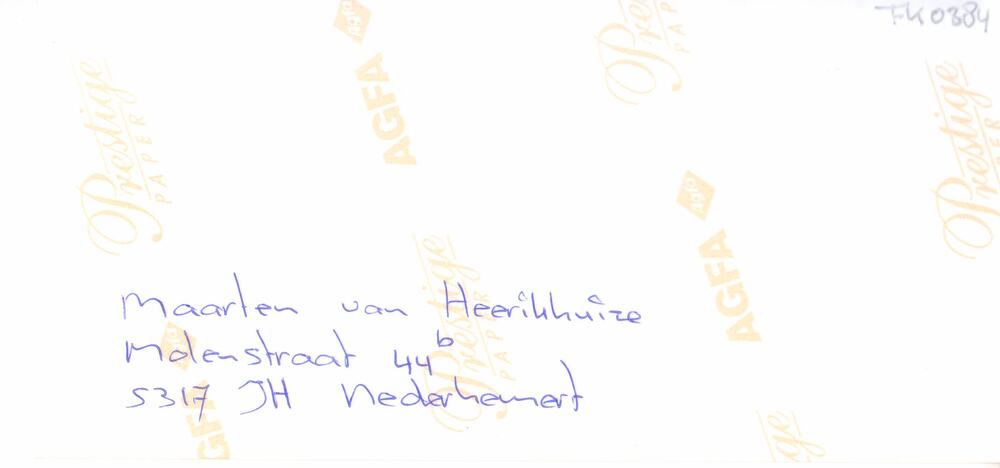 FK0384
Agfa
AGFA
Prestige
PAPER
Prestige
PAPER
Prestige
PAPER
Agfa
AGFA
Prestige
PAPER
Maarten van Heerikhuize
Molenstraat 44b
5317 JH Nederhemert
Agfa
AGFA
Prestige